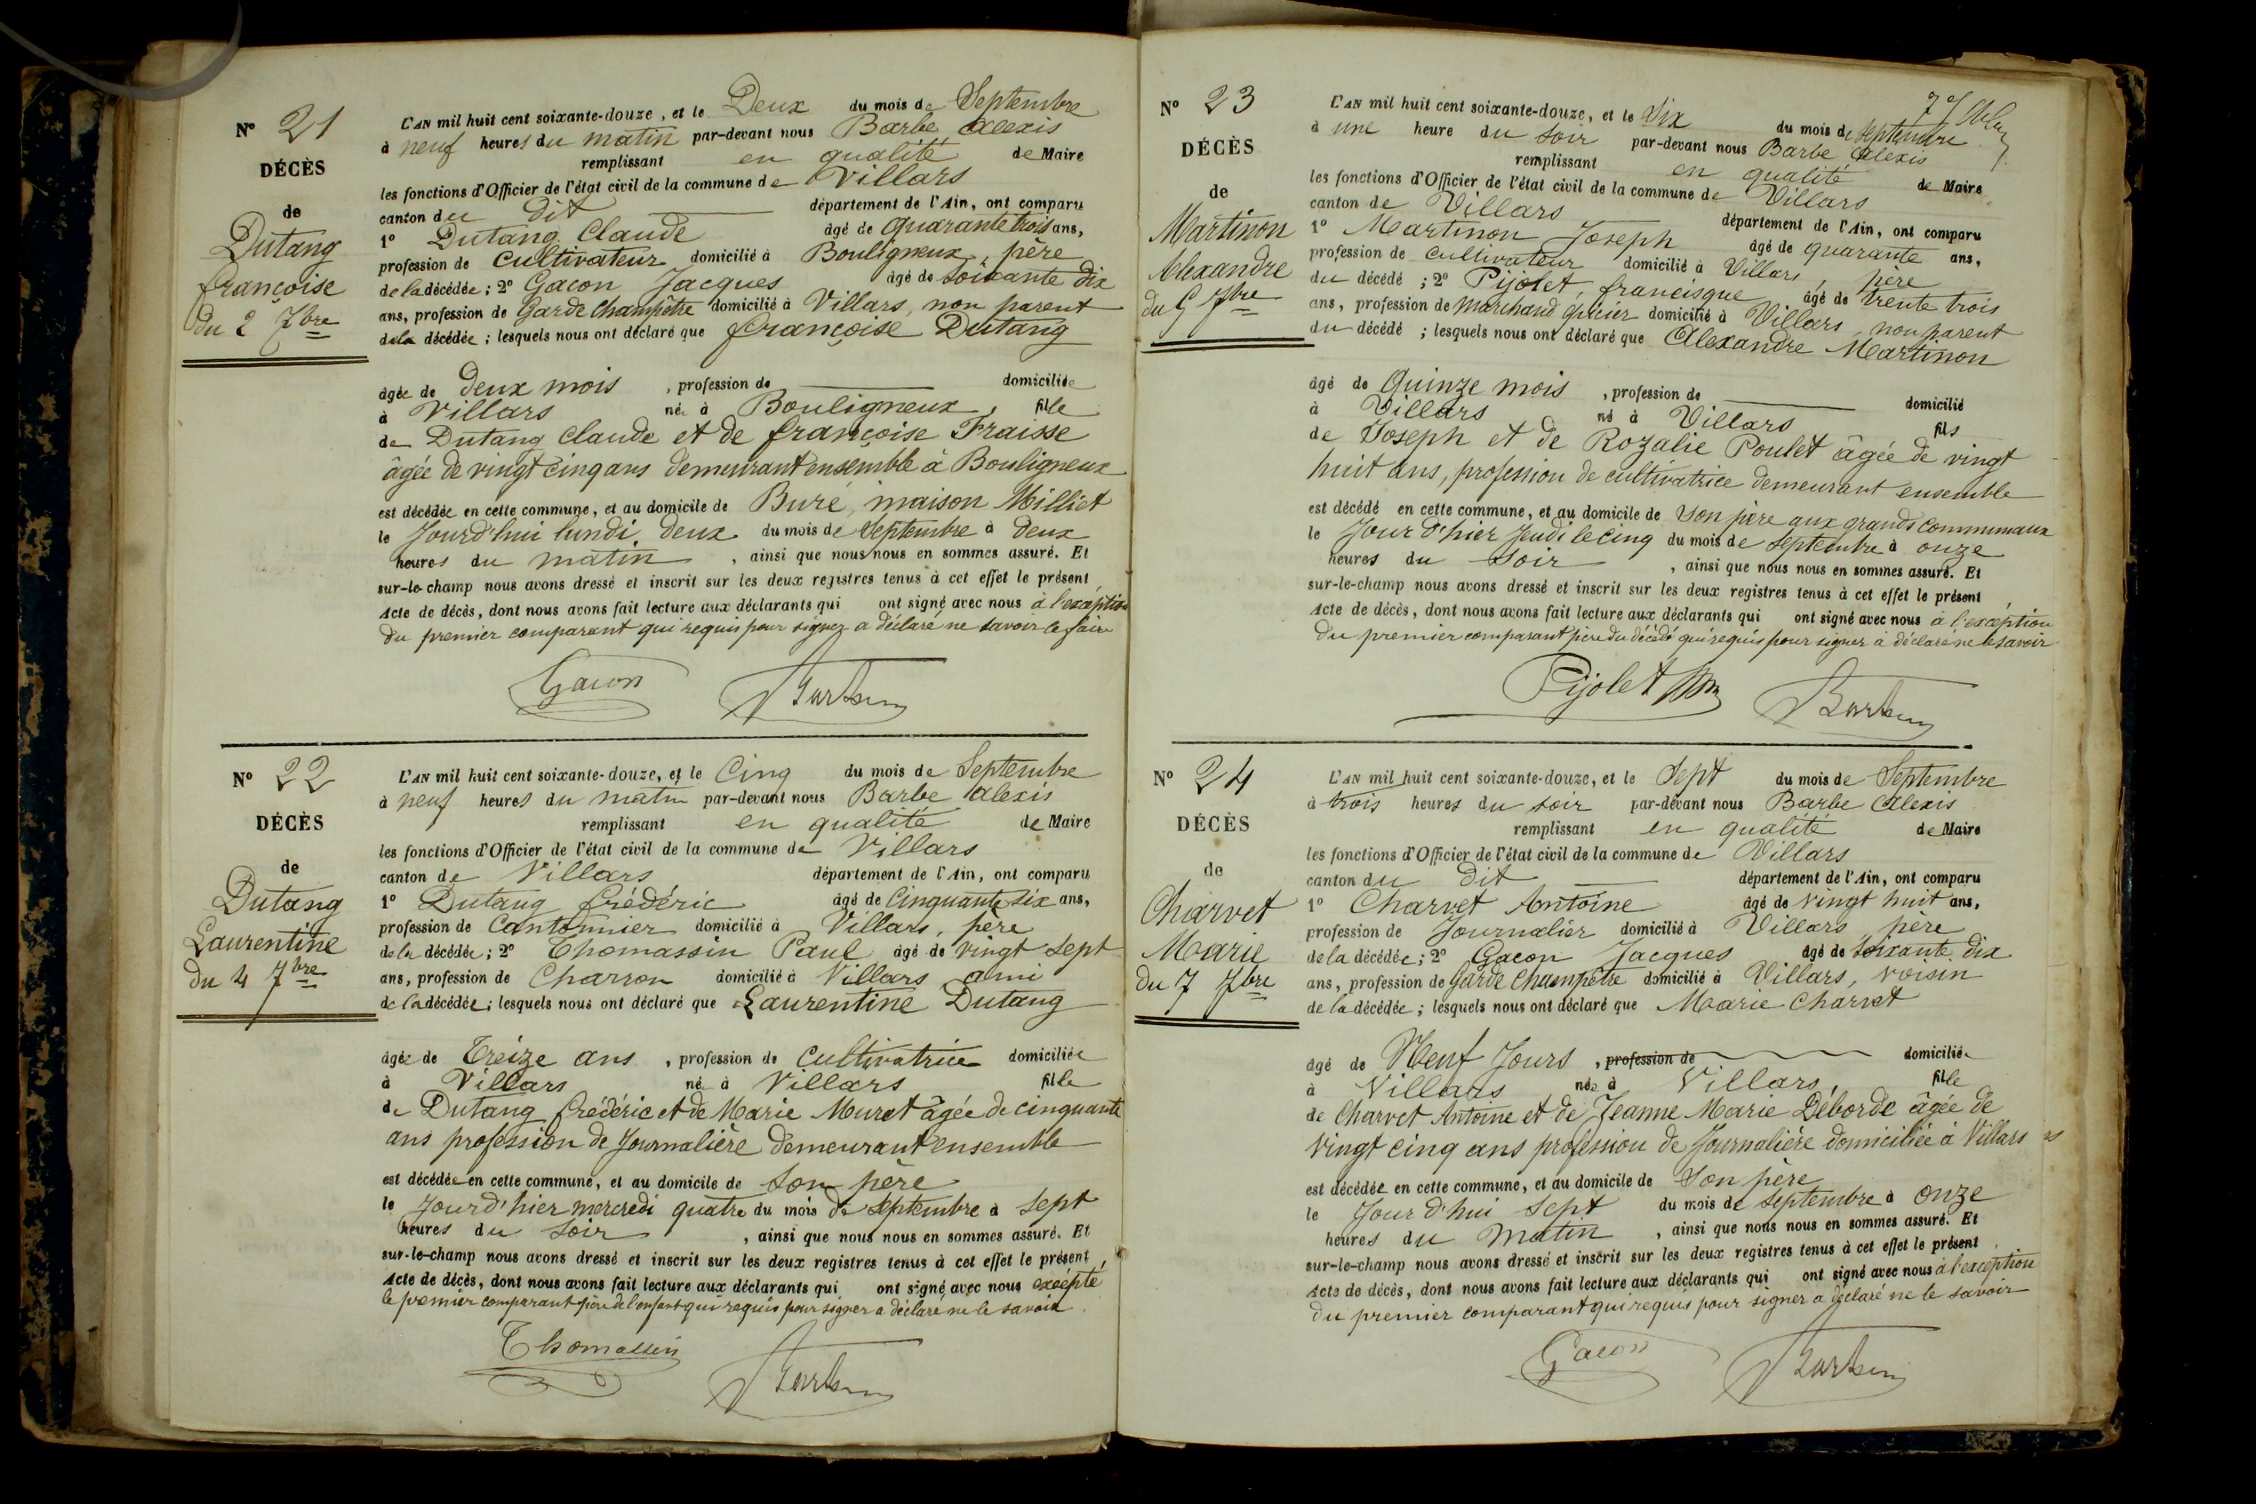 N° 21
DÉCÈS
de
Dutang
françoise
du 2 7bre
L'AN mil huit cent soixante-douze, et le Deux du mois de Septembre
à neuf heures du matin par-devant nous Barbe Alexis
remplissant en qualité de Maire
les fonctions d'Officier de l'état civil de la commune de Villars
canton du dit département de l'Ain, ont comparu
1° Dutang Claude âgé de quarante trois ans,
profession de cultivateur domicilié à Bouligneux, père
de la décédée; 2° Gacon Jacques âgé de soixante dix
ans, profession de Garde Champêtre domicilié à Villars, non parent
de la décédée; lesquels nous ont déclaré que françoise Dutang
âgée de deux mois, profession de domiciliée
à Villars née à Bouligneux, fille
de Dutang Claude et de françoise Fraisse
âgée de vingt cinq ans demeurant ensemble à Bouligneux
est décédée en cette commune, et au domicile de Buré, maison Milliet
le Jourd'hui lundi deux du mois de Septembre à deux
heures du matin, ainsi que nous nous en sommes assuré. Et
sur-le-champ nous avons dressé et inscrit sur les deux registres tenus à cet effet le présent
Acte de décès, dont nous avons fait lecture aux déclarants qui ont signé avec nous à l'exéption
du premier comparant qui requis pour signer a déclaré ne savoir le faire
Gacon
N° 22
DÉCÈS
de
Dutang
Laurentine
du 4 7bre
L'AN mil huit cent soixante-douze, et le Cinq du mois de Septembre
à neuf heures du matin par-devant nous Barbe Alexis
remplissant en qualité de Maire
les fonctions d'Officier de l'état civil de la commune de Villars
canton de Villars département de l'Ain, ont comparu
1° Dutang frédéric âgé de Cinquante six ans,
profession de Cantonnier domicilié à Villars, père
de la décédée; 2° Thomassin Paul âgé de vingt sept
ans, profession de Charron domicilié à Villars ami
de la décédée; lesquels nous ont déclaré que Laurentine Dutang
âgée de Treize ans, profession de Cultivatrice domiciliée
à Villars née à Villars fille
de Dutang frédéric et de Marie Muret âgée de cinquante
ans profession de Journalière demeurant ensemble
est décédée en cette commune, et au domicile de son père
le Jourd'hier mercredi quatre du mois de septembre à sept
heures du soir, ainsi que nous nous en sommes assuré. Et
sur-le-champ nous avons dressé et inscrit sur les deux registres tenus à cet effet le présent
Acte de décès, dont nous avons fait lecture aux déclarants qui ont signé avec nous excépté
le premier comparant père de l'enfant qui requis pour signer a déclaré ne le savoir
Thomassin
N° 23
DÉCÈS
de
Martinon
Alexandre
du 5 7bre
L'AN mil huit cent soixante-douze, et le Six du mois de septembre
à une heure du soir par-devant nous Barbe Alexis
remplissant en qualité de Maire
les fonctions d'Officier de l'état civil de la commune de Villars
canton de Villars département de l'Ain, ont comparu
1° Martinon Joseph âgé de quarante ans,
profession de cultivateur domicilié à Villars, père
du décédé; 2° Pijolet francisque âgé de trente trois
ans, profession de marchand épicier domicilié à Villars, non parent
du décédé; lesquels nous ont déclaré que Alexandre Martinon
âgé de Quinze mois, profession de domicilié
à Villars né à Villars fils
de Joseph et de Rozalie Poulet âgée de vingt
huit ans, profession de cultivatrice demeurant ensemble
est décédé en cette commune, et au domicile de son père aux grands communaux
le Jour d'hier Jeudi le cinq du mois de septembre à onze
heures du soir, ainsi que nous nous en sommes assuré. Et
sur-le-champ nous avons dressé et inscrit sur les deux registres tenus à cet effet le présent
Acte de décès, dont nous avons fait lecture aux déclarants qui ont signé avec nous à l'exception
du premier comparant père du décédé qui requis pour signer a déclaré ne le savoir
Pijolet
N° 24
DÉCÈS
de
Charvet
Marie
du 7 7bre
L'AN mil huit cent soixante-douze, et le Sept du mois de Septembre
à trois heures du soir par-devant nous Barbe Alexis
remplissant en qualité de Maire
les fonctions d'Officier de l'état civil de la commune de Villars
canton du dit département de l'Ain, ont comparu
1° Charvet Antoine âgé de vingt huit ans,
profession de Journalier domicilié à Villars père
de la décédée; 2° Gacon Jacques âgé de soixante dix
ans, profession de Garde Champêtre domicilié à Villars, voisin
de la décédée; lesquels nous ont déclaré que Marie Charvet
âgé de Neuf Jours, profession de domiciliée
à Villars née à Villars, fille
de Charvet Antoine et de Jeanne Marie Déborde âgée de
vingt cinq ans profession de Journalière domiciliée à Villars
est décédée en cette commune, et au domicile de son père
le Jour d'hui sept du mois de septembre à onze
heures du matin, ainsi que nous nous en sommes assuré. Et
sur-le-champ nous avons dressé et inscrit sur les deux registres tenus à cet effet le présent
Acte de décès, dont nous avons fait lecture aux déclarants qui ont signé avec nous à l'exception
du premier comparant qui requis pour signer a déclaré ne le savoir
Gacon